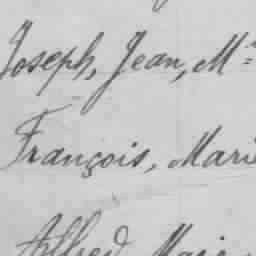 Joseph, Jean, M
François, Mari
Alfred